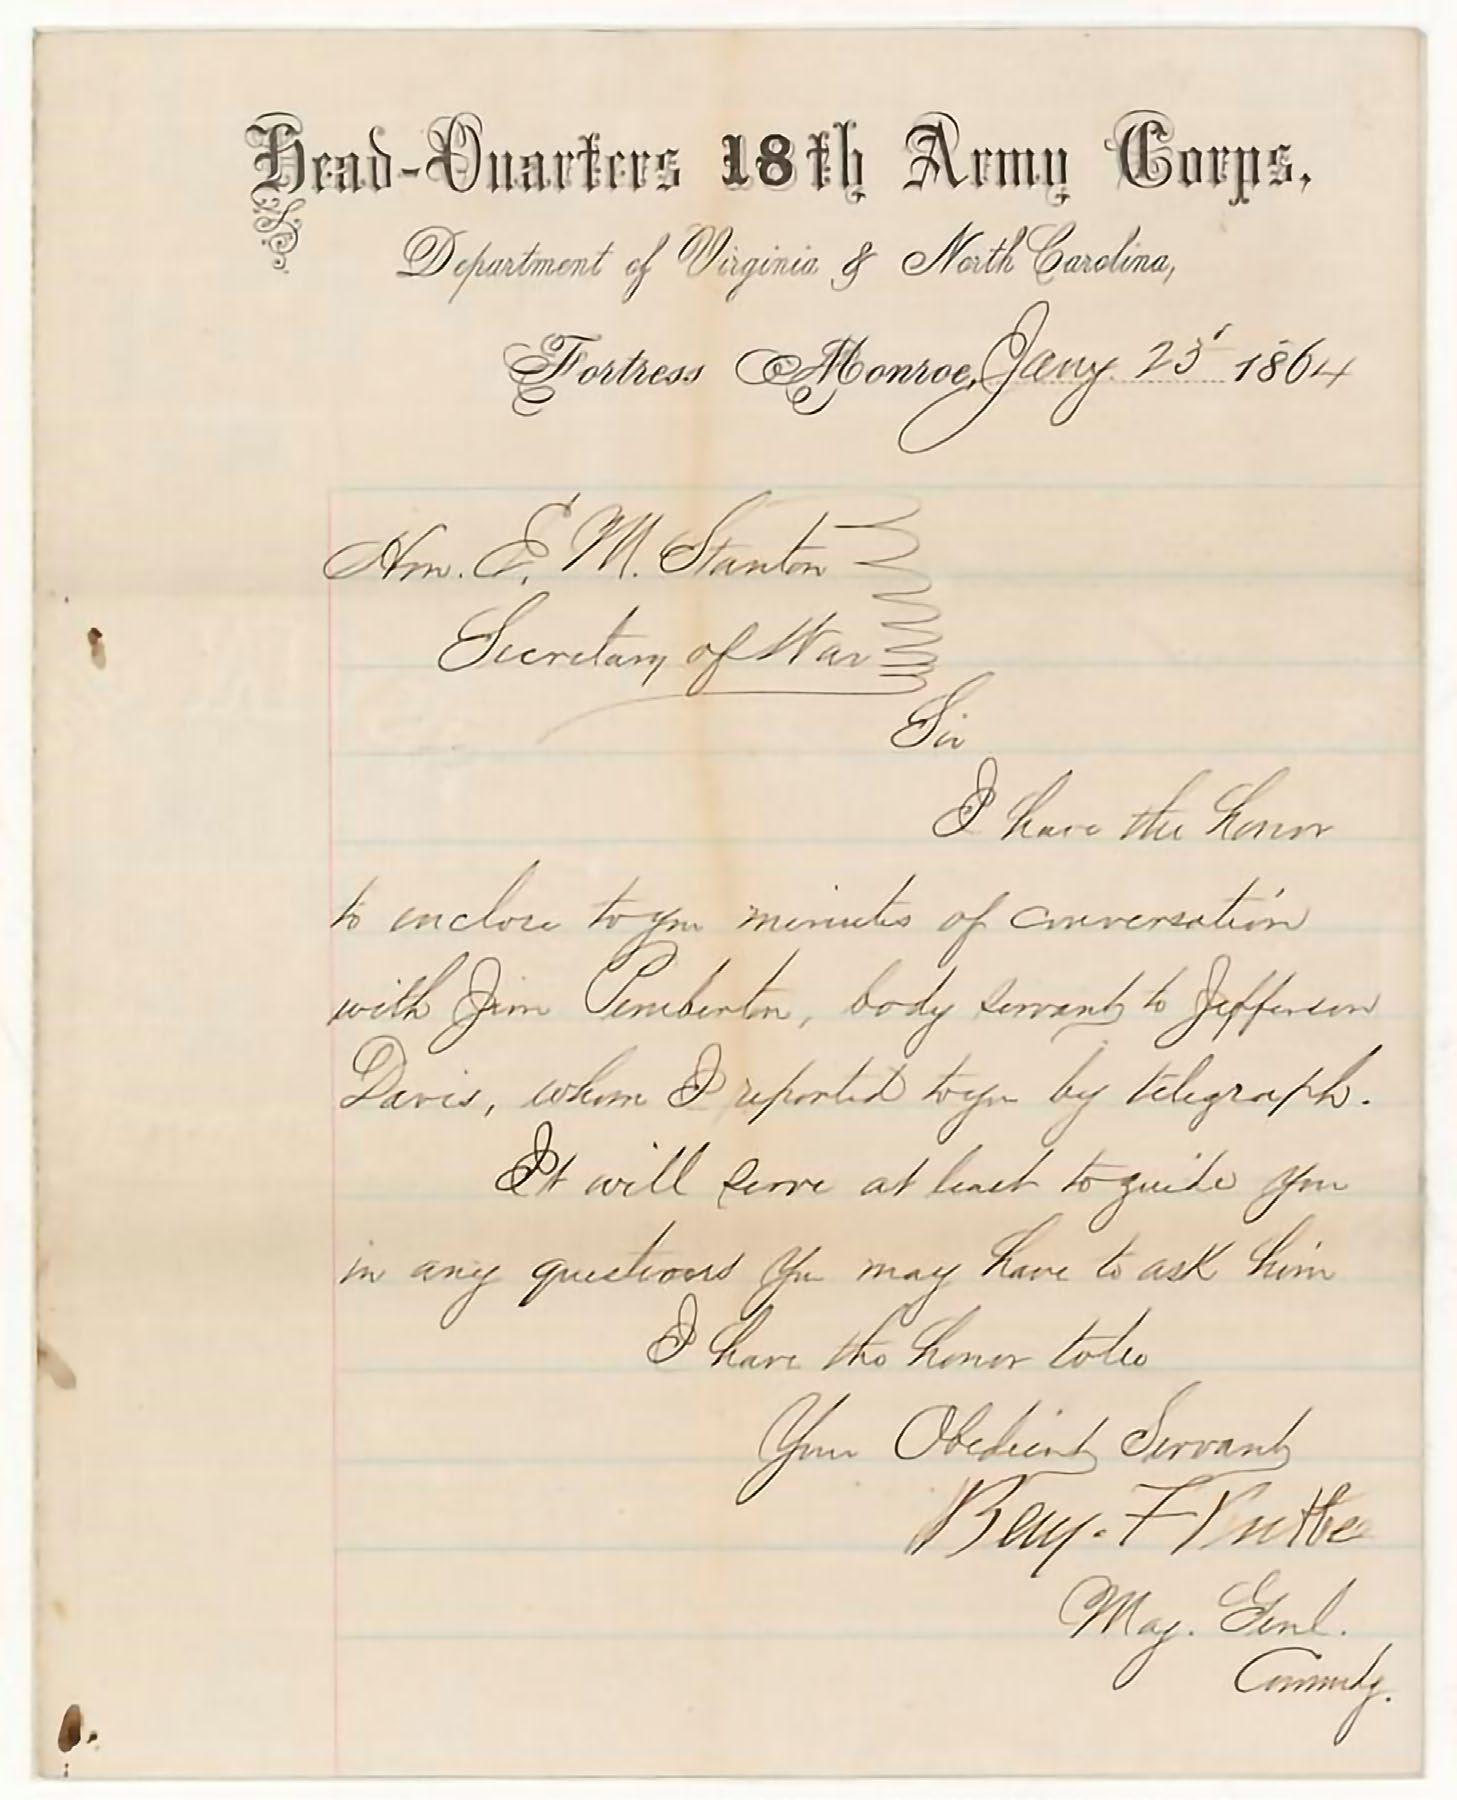 Head-Quarters 18th Army Corps,
Department of Virginia & North Carolina,
Fortress Monroe, Jany. 23' 1864
Hon. E. M. Stanton
Secretary of War
Sir
I have the honor
to enclose to you minutes of conversation
with Jim Pemberton, body servant to Jefferson
Davis, whom I reported to you by telegraph.
It will serve at least to guide you
in any questions you may have to ask him
I have the honor to be
Your Obedient Servant
Benj. F Butler
Maj. Genl.
Commdg.